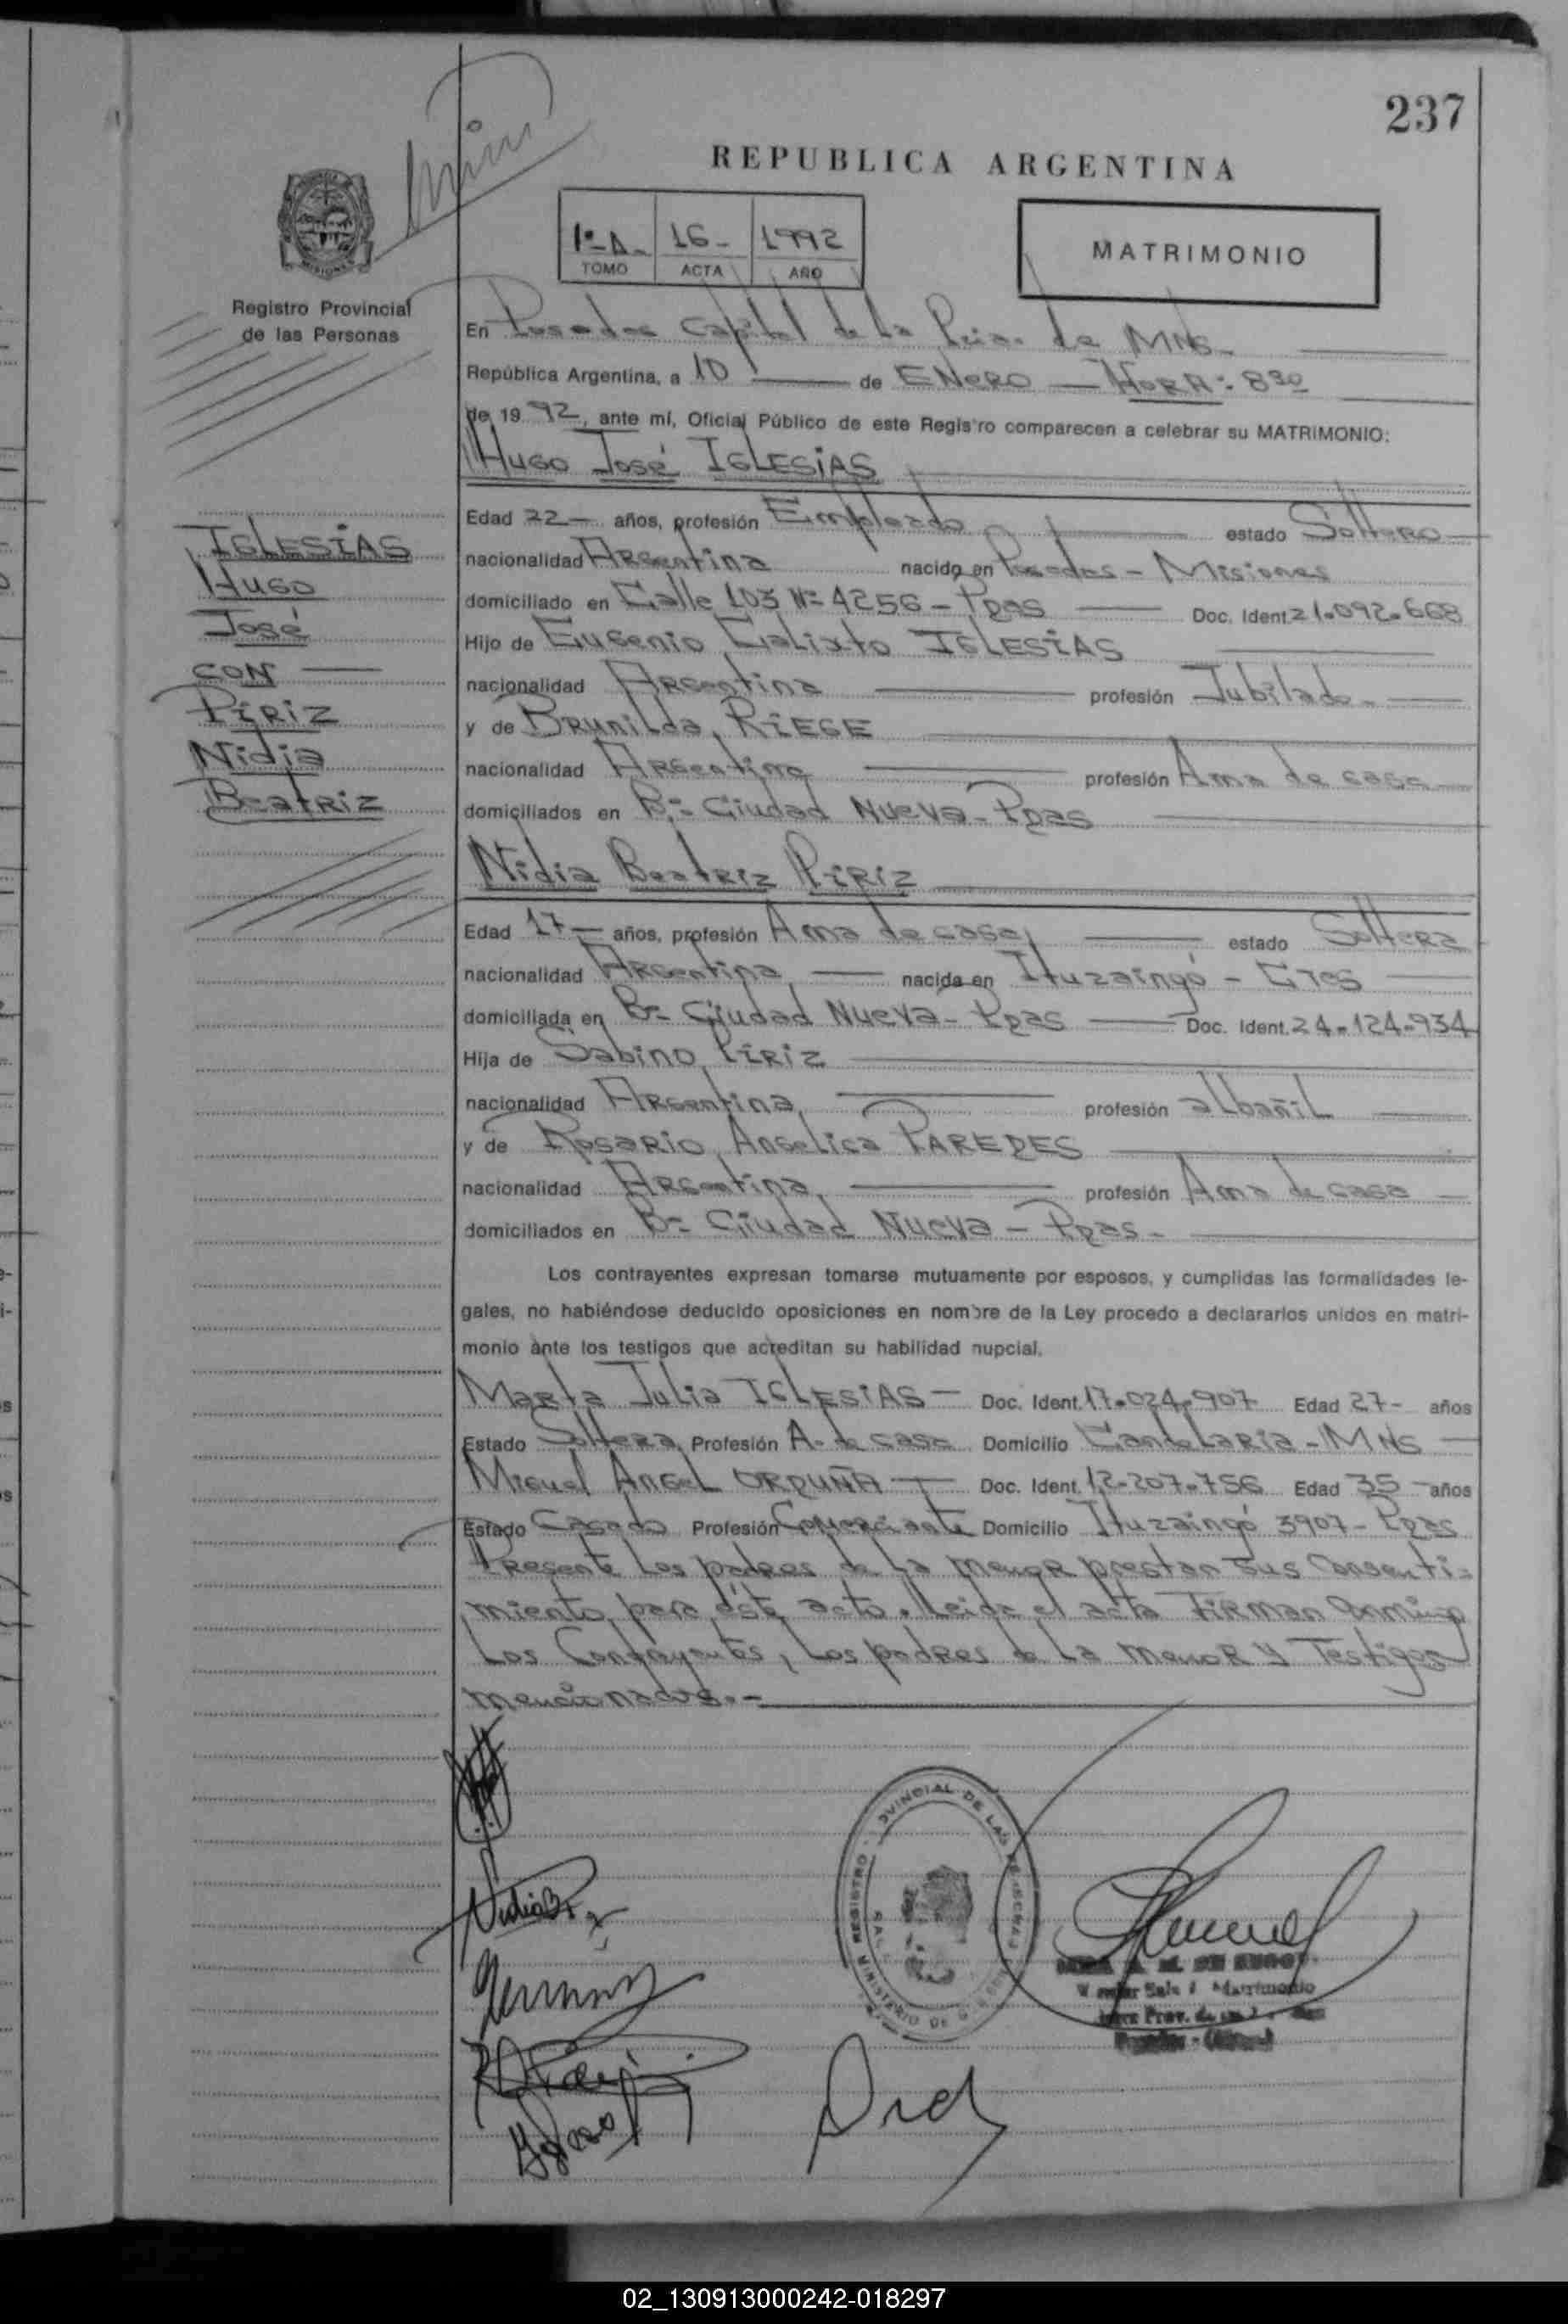 237
REPUBLICA ARGENTINA
MISIONES
Registro Provincial
de las Personas
1º-A- 16- 1992
TOMO ACTA AÑO
MATRIMONIO
En Posadas Capital de la Pcia. de MNS-
República Argentina, a 10 de ENERO - HORA: 8 30
de 19 92, ante mí, Oficial Público de este Registro comparecen a celebrar su MATRIMONIO:
Hugo José IGLESIAS
Edad 22- años, profesión Empleado estado Soltero
nacionalidad Argentina nacido en Posadas - Misiones
domiciliado en Calle 103 Nº 4256 - Pdas Doc. Ident 21.092.668
Hijo de Eugenio Calixto IGLESIAS
nacionalidad Argentina profesión Jubilado-
y de Brunilda RIEGE
nacionalidad Argentina profesión Ama de casa
domiciliados en Bº Ciudad Nueva - Pdas
IGLESIAS
Hugo
José
CON
PIRIZ
Nidia
Beatriz
Nidia Beatriz PIRIZ
Edad 17- años, profesión Ama de casa estado Soltera
nacionalidad Argentina nacida en Ituzaingó - Ctes
domiciliada en Bº Ciudad Nueva - Pdas Doc. Ident. 24.124.934
Hija de Sabino PIRIZ
nacionalidad Argentina profesión albañil
y de Rosario Angelica PAREDES
nacionalidad Argentina profesión Ama de casa
domiciliados en Bº Ciudad Nueva - Pdas-
Los contrayentes expresan tomarse mutuamente por esposos, y cumplidas las formalidades le-
gales, no habiéndose deducido oposiciones en nombre de la Ley procedo a declararlos unidos en matri-
monio ante los testigos que acreditan su habilidad nupcial.
Marta Julia IGLESIAS - Doc. Ident. 17.024.907 Edad 27- años
Estado Soltera Profesión A. de casa Domicilio Candelaria - MNS
Miguel Angel ORDUÑA - Doc. Ident. 12.207.756 Edad 35 años
Estado Casado Profesión Comerciante Domicilio Ituzaingó 3907 - Pdas
Presente los padres de la menor prestan sus consenti-
miento para éste acto. Leída el acta Firman Conmigo
Los Contrayentes, Los padres de La menor y Testigos
mencionados.-
REGISTRO PROVINCIAL DE LAS PERSONAS
MINISTERIO DE
Nidia B.
Sala Matrimonio
02_130913000242-018297